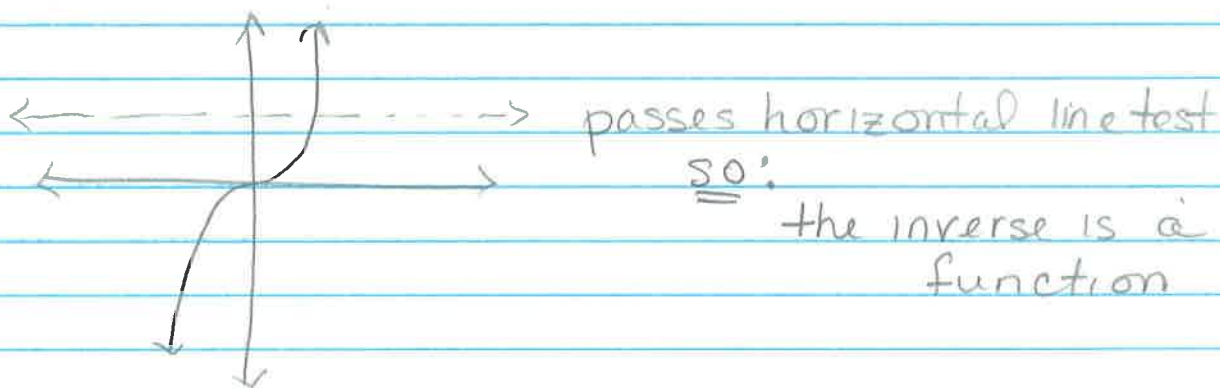 passes horizontal line test
so:
the inverse is a
function